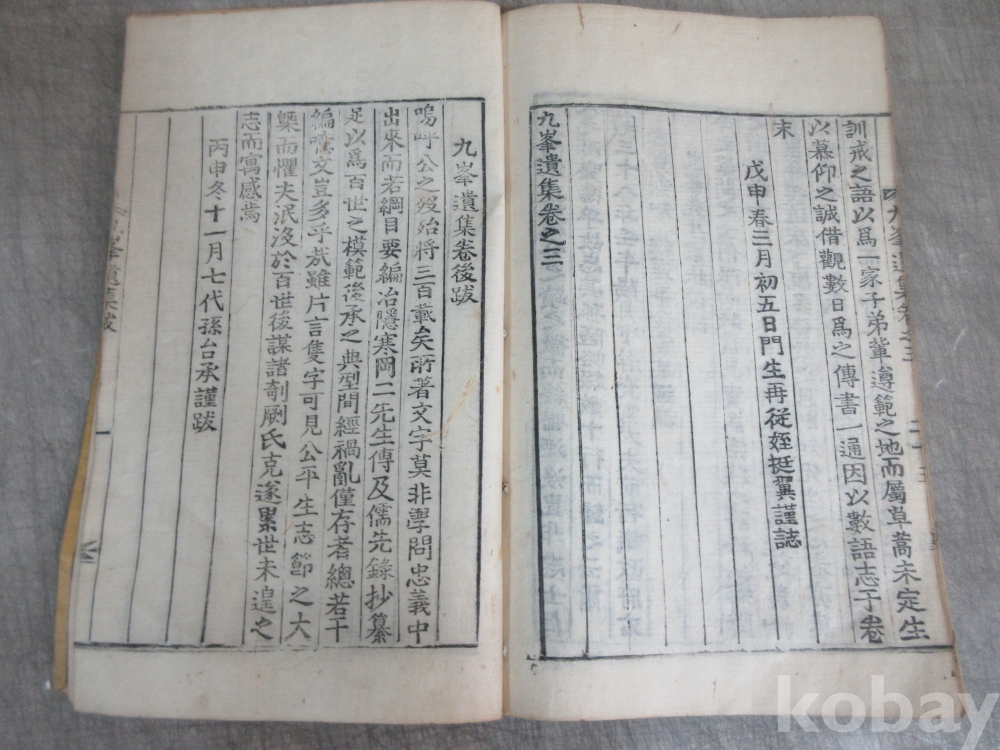 訓戒之語以爲一家子弟輩遵範之地而屬草蒿未定生
以慕仰之誠借觀數日爲之傳書一通因以數語志于卷
末
戊申春三月初五日門生再從姪挺翼謹誌
九峯遺集卷之三
九峯遺集卷後跋
嗚呼公之歿殆將三百載矣所著文字莫非學問忠義中
出來而若綱目要編冶隱寒岡二先生傳及儒先錄抄纂
足以爲百世之模範後承之典型間經禍亂僅存者總若干
編噫文豈多乎哉雖片言隻字可見公平生志節之大
槩而懼夫泯沒於百世後謀諸剞劂氏克遂累世未遑之
志而寓感焉
丙申冬十一月七代孫台承謹跋
kobay